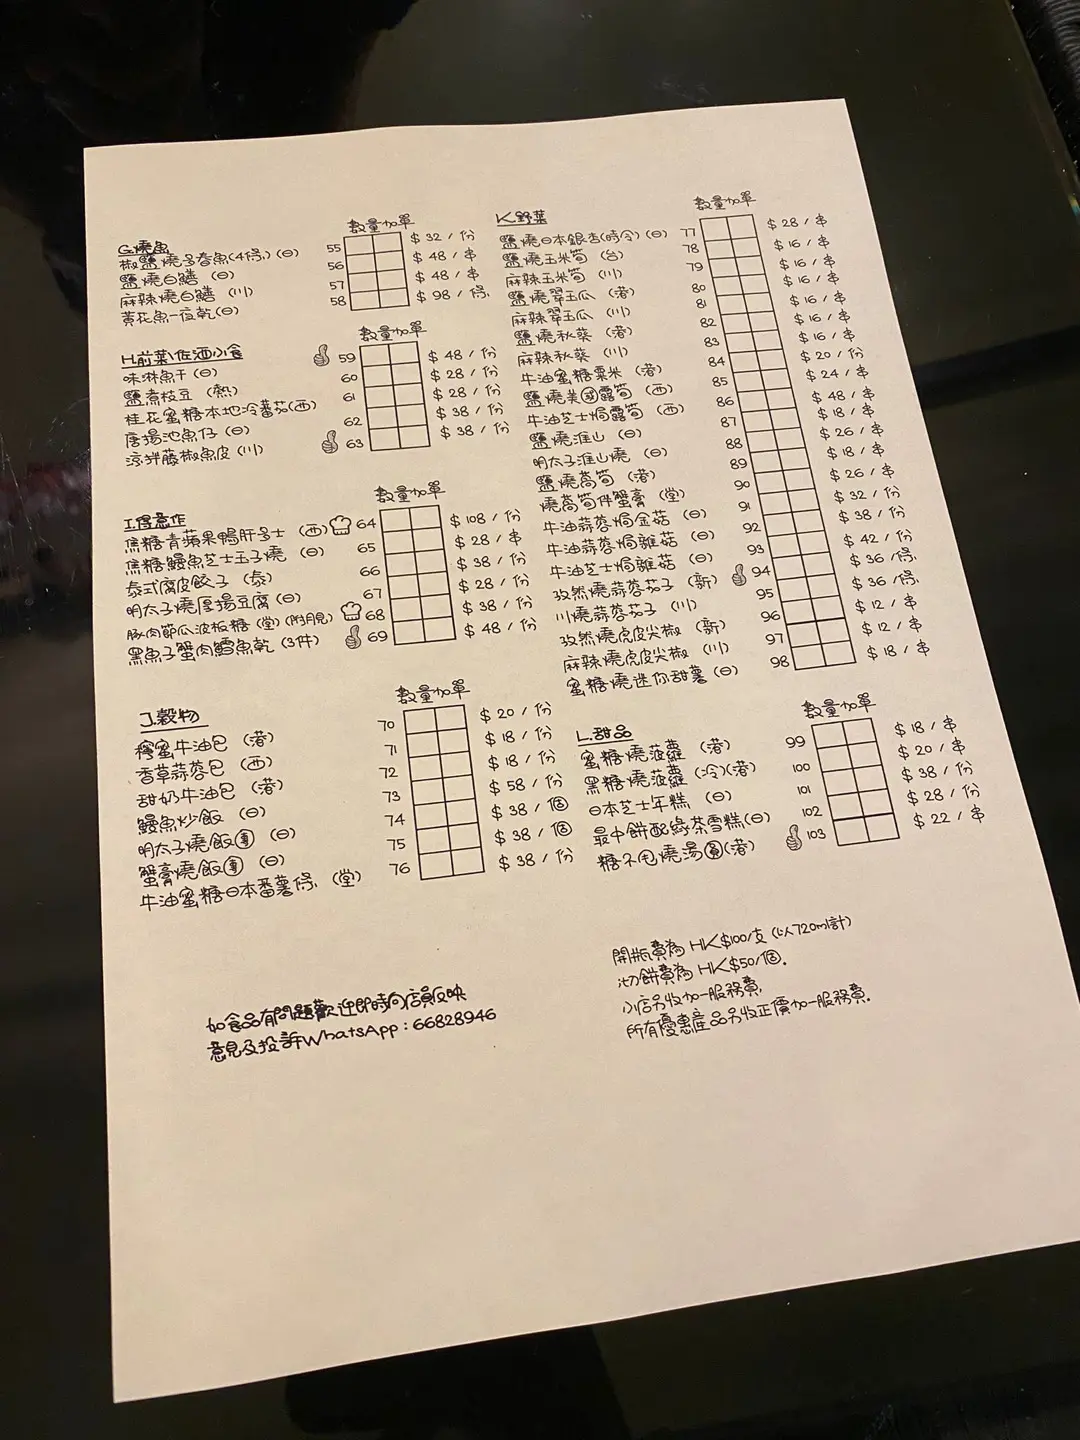 數量加單
G.燒魚
椒鹽燒多春魚(4條)(日) 55 $32/份
鹽燒白鱔(日) 56 $48/串
麻辣燒白鱔(川) 57 $48/串
黃花魚一夜乾(日) 58 $98/條
數量加單
H.前菜\佐酒小食
味淋魚干(日) 59 $48/份
鹽煮枝豆(熱) 60 $28/份
桂花蜜糖本地冷番茄(西) 61 $28/份
唐揚池魚仔(日) 62 $38/份
涼拌藤椒魚皮(川) 63 $38/份
數量加單
I.得意作
焦糖青蘋果鴨肝多士(西) 64 $108/份
焦糖鰻魚芝士玉子燒(日) 65 $28/串
泰式腐皮餃子(泰) 66 $38/份
明太子燒厚揚豆腐(日) 67 $28/份
豚肉節瓜波板糖(堂)(附月見) 68 $38/份
黑魚子蟹肉鱈魚乾(3件) 69 $48/串
數量加單
J.穀物
檸蜜牛油包(港) 70 $20/份
香草蒜蓉包(西) 71 $18/份
甜奶牛油包(港) 72 $18/份
鰻魚炒飯(日) 73 $58/份
明太子燒飯團(日) 74 $38/個
蟹膏燒飯團(日) 75 $38/個
牛油蜜糖日本番薯條(堂) 76 $38/份
數量加單
K.野菜
鹽燒日本銀杏(時令)(日) 77 $28/串
鹽燒玉米筍(台) 78 $16/串
麻辣玉米筍(川) 79 $16/串
鹽燒翠玉瓜(港) 80 $16/串
麻辣翠玉瓜(川) 81 $16/串
鹽燒秋葵(港) 82 $16/串
麻辣秋葵(川) 83 $16/串
牛油蜜糖粟米(港) 84 $20/份
鹽燒美國露筍(西) 85 $24/串
牛油芝士焗露筍(西) 86 $48/份
鹽燒淮山(日) 87 $18/串
明太子淮山燒(日) 88 $26/串
鹽燒萵筍(港) 89 $18/串
燒萵筍伴蟹膏(堂) 90 $26/串
牛油蒜蓉焗金菇(日) 91 $32/份
牛油蒜蓉焗雜菇(日) 92 $38/份
牛油芝士焗雜菇(日) 93 $42/份
孜然燒蒜蓉茄子(新) 94 $36/條
川燒蒜蓉茄子(川) 95 $36/條
孜然燒虎皮尖椒(新) 96 $12/串
麻辣燒虎皮尖椒(川) 97 $12/串
蜜糖燒迷你甜薯(日) 98 $18/串
數量加單
L.甜品
蜜糖燒菠蘿(港) 99 $18/串
黑糖燒菠蘿(冷)(港) 100 $20/串
日本芝士年糕(日) 101 $38/份
最中餅配綠茶雪糕(日) 102 $28/份
糖不甩燒湯圓(港) 103 $22/串
如食品有問題歡迎即時向店員反映
意見及投訴WhatsApp:66828946
開瓶費為HK$100/支(以720ml計)
切餅費為HK$50/個。
小店另收加一服務費,
所有優惠產品另收正價加一服務費。